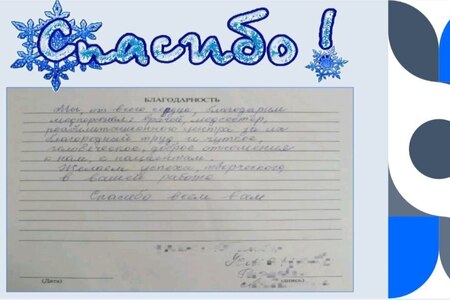 Спасибо!
БЛАГОДАРНОСТЬ
Мы, от всего сердца, благодарим
врачей, медсестер,
реабилитационного центра за их
благородный труд и чуткое,
человеческое, доброе отношение
к нам, о пациентам.
Желаем успеха, творческого
в вашей работе
Спасибо всем вам
(Дата)